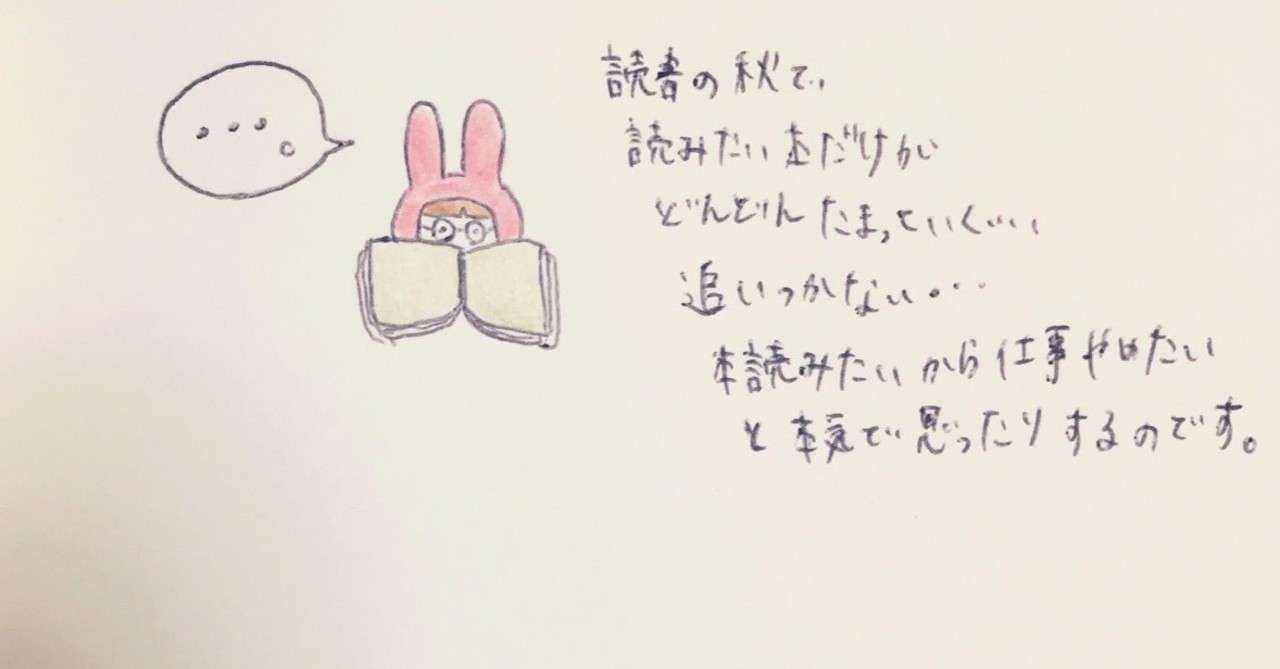 ・・・。
読書の秋で、
読みたい本だけが
どんどんたまっていく…
追いつかない…
本読みたいから仕事やめたい
と本気で思ったりするのです。